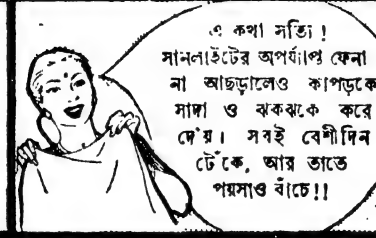 এ কথা সত্যি !
সানলাইটের অপর্য্যাপ্ত ফেনা
না আছড়ালেও কাপড়কে
সাদা ও ঝকঝকে করে
দে'য়। সবই বেশীদিন
টেঁকে, আর তাতে
পয়সাও বাঁচে!!